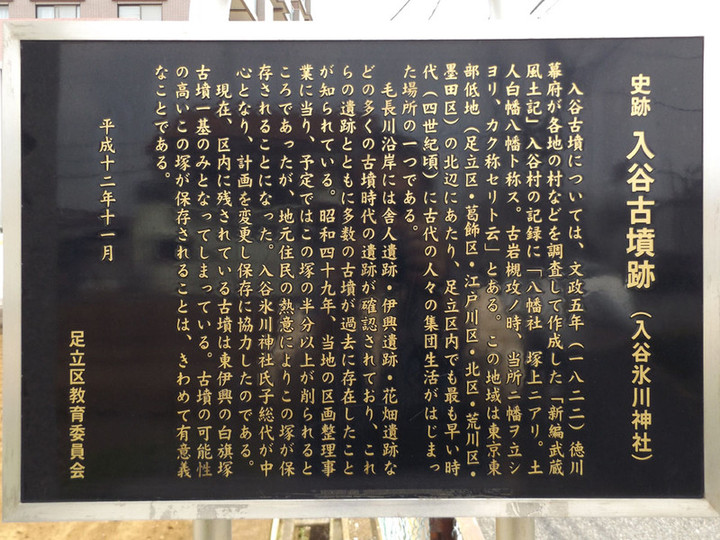 史跡 入谷古墳跡 (入谷氷川神社)
入谷古墳については、文政五年(一八二二)徳川
幕府が各地の村などを調査して作成した「新編武蔵
風土記」入谷村の記録に「八幡社 塚上ニアリ。土
人白幡八幡ト称ス。古岩槻攻ノ時、当所ニ幡ヲ立シ
ヨリ、カク称セリト云」とある。この地域は東京東
部低地(足立区・葛飾区・江戸川区・北区・荒川区・
墨田区)の北辺にあたり、足立区内でも最も早い時
代(四世紀頃)に古代の人々の集団生活がはじまっ
た場所の一つである。
毛長川沿岸には舎人遺跡・伊興遺跡・花畑遺跡な
どの多くの古墳時代の遺跡が確認されており、これ
らの遺跡とともに多数の古墳が過去に存在したこと
が知られている。昭和四十九年、当地の区画整理事
業に当り、予定ではこの塚の半分以上が削られると
ころであったが、地元住民の熱意によりこの塚が保
存されることになった。入谷氷川神社氏子総代が中
心となり、計画を変更し保存に協力したのである。
現在、区内に残されている古墳は東伊興の白旗塚
古墳一基のみとなってしまっている。古墳の可能性
の高いこの塚が保存されることは、きわめて有意義
なことである。
平成十二年十一月
足立区教育委員会